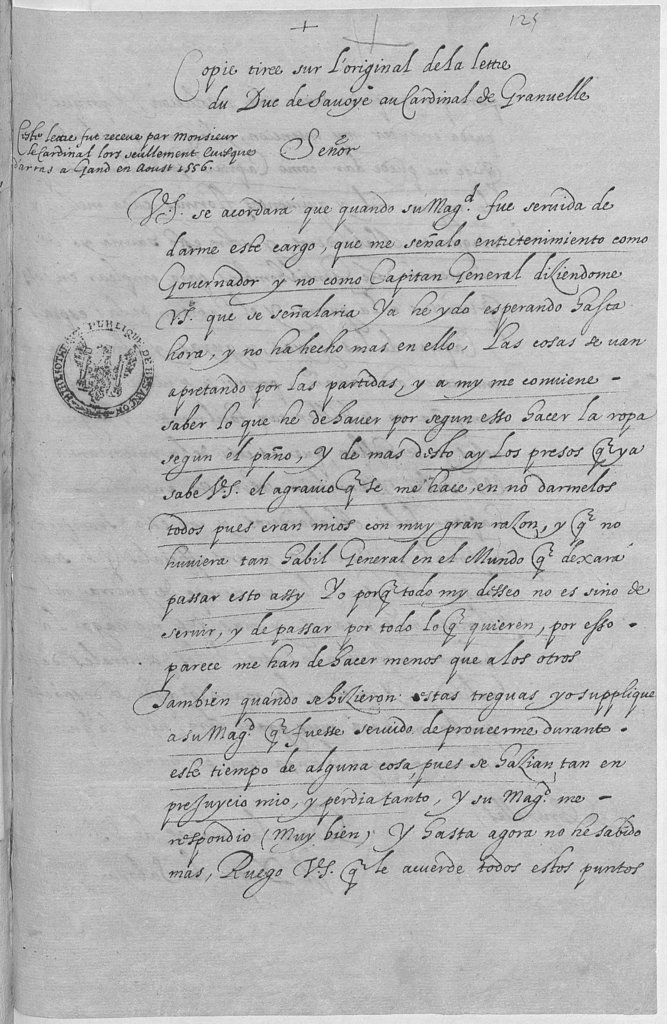 125
Copie tiree sur l'original de la lettre
du Duc de Savoye au Cardinal de Granvelle
Ceste lectre fut receue par Monsieur
le Cardinal lors seullement Euesque
d'arras a Gand en Aoust 1556.
Señor
V.S. se acordará que quando su Mag.d fue seruida de
darme este cargo, que me señalo entretenimiento como
Gouernador y no como Capitan General diziendome
V.S. que se señalaria Ya he ydo esperando hasta
hora, y no ha hecho mas en ello, Las cosas se van
apretando por las partidas, y a my me conviene -
saber lo que he de hauer por segun esso hacer la ropa
segun el paño, y de mas desto ay los presos q̃ ya
sabe V.S. el agrauio q̃ se me hace, en no darmelos
todos pues eran mios con muy gran razon, y q̃ no
huuiera tan habil General en el Mundo q̃ dexará
passar esto assy Yo porq̃ todo my desseo no es sino de
seruir, y de passar por todo lo q̃ quieren, por esso -
parece me han de hacer menos que a los otros
Tambien quando se hizieron estas treguas yo supplique
a su Mag.d q̃ fuesse seruido de proueerme durante -
este tiempo de alguna cosa, pues se hazian tan en
prejuycio mio, y perdia tanto, Y su Mag.d me -
respondio (Muy bien) Y hasta agora no he sabido
mas, Ruego V.S. q̃ le acuerde todos estos puntos
BIBLIOTHEQUE PUBLIQUE DE BESANÇON